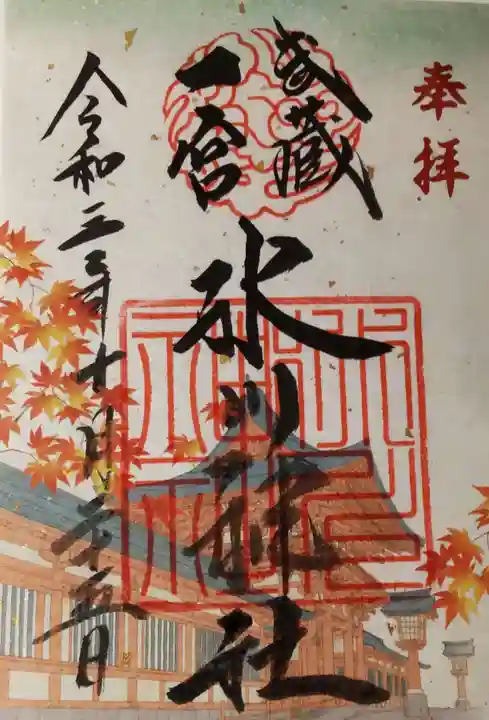 奉拝
武蔵
一宮
氷川神社
令和三年十月二十五日